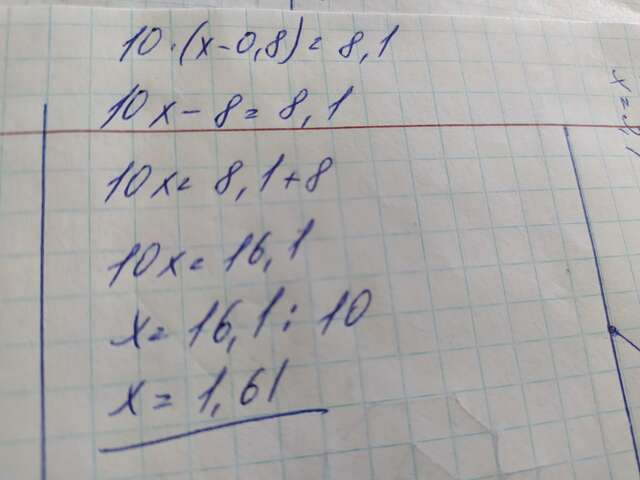 10·(x-0,8)=8,1
10x-8=8,1
10x=8,1+8
10x=16,1
x=16,1:10
x=1,61